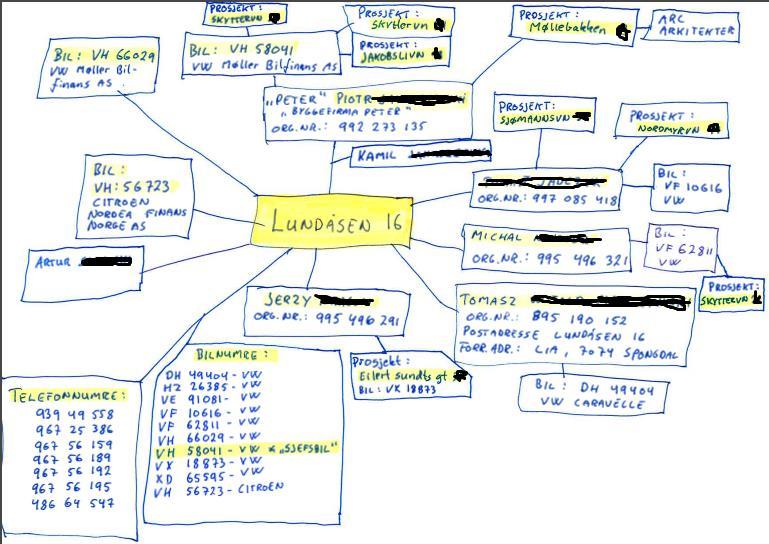 PROSJEKT:
SKYTTERVN
PROSJEKT:
SKYTTERVN
PROSJEKT:
JAKOBSLIVN
PROSJEKT:
Møllebakken
ARC
ARKITEKTER
BIL: VH 66029
VW Møller Bil-
finans AS
BIL: VH 58041
VW Møller Bilfinans AS
„PETER" PIOTR
„BYGGEFIRMA PETER"
ORG.NR.: 992 273 135
KAMIL
PROSJEKT:
SJØMANNSVN
PROSJEKT:
NORDMYRVN
BIL:
VH: 56723
CITROEN
NORDEA FINANS
NORGE AS
ORG.NR.: 997 085 418
BIL:
VF 10616
VW
LUNDÅSEN 16
MICHAL
ORG.NR.: 995 496 321
BIL:
VF 62811
VW
PROSJEKT:
SKYTTERVN
ARTUR
JERZY
ORG.NR.: 995 496 291
TOMASZ
ORG.NR.: 895 190 152
POSTADRESSE LUNDÅSEN 16
FORR.ADR.: LIA, 7074 SPONGDAL
Prosjekt:
Eilert sundts gt
BIL: VX 18873
BIL: DH 49404
VW CARAVELLE
TELEFONNUMRE:
939 49 558
967 25 386
967 56 159
967 56 189
967 56 192
967 56 195
486 64 547
BILNUMRE:
DH 49404 - VW
HZ 26385 - VW
VE 91081 - VW
VF 10616 - VW
VF 62811 - VW
VH 66029 - VW
VH 58041 - VW * „SJEFSBIL"
VX 18873 - VW
XD 65595 - VW
VH 56723 - CITROEN